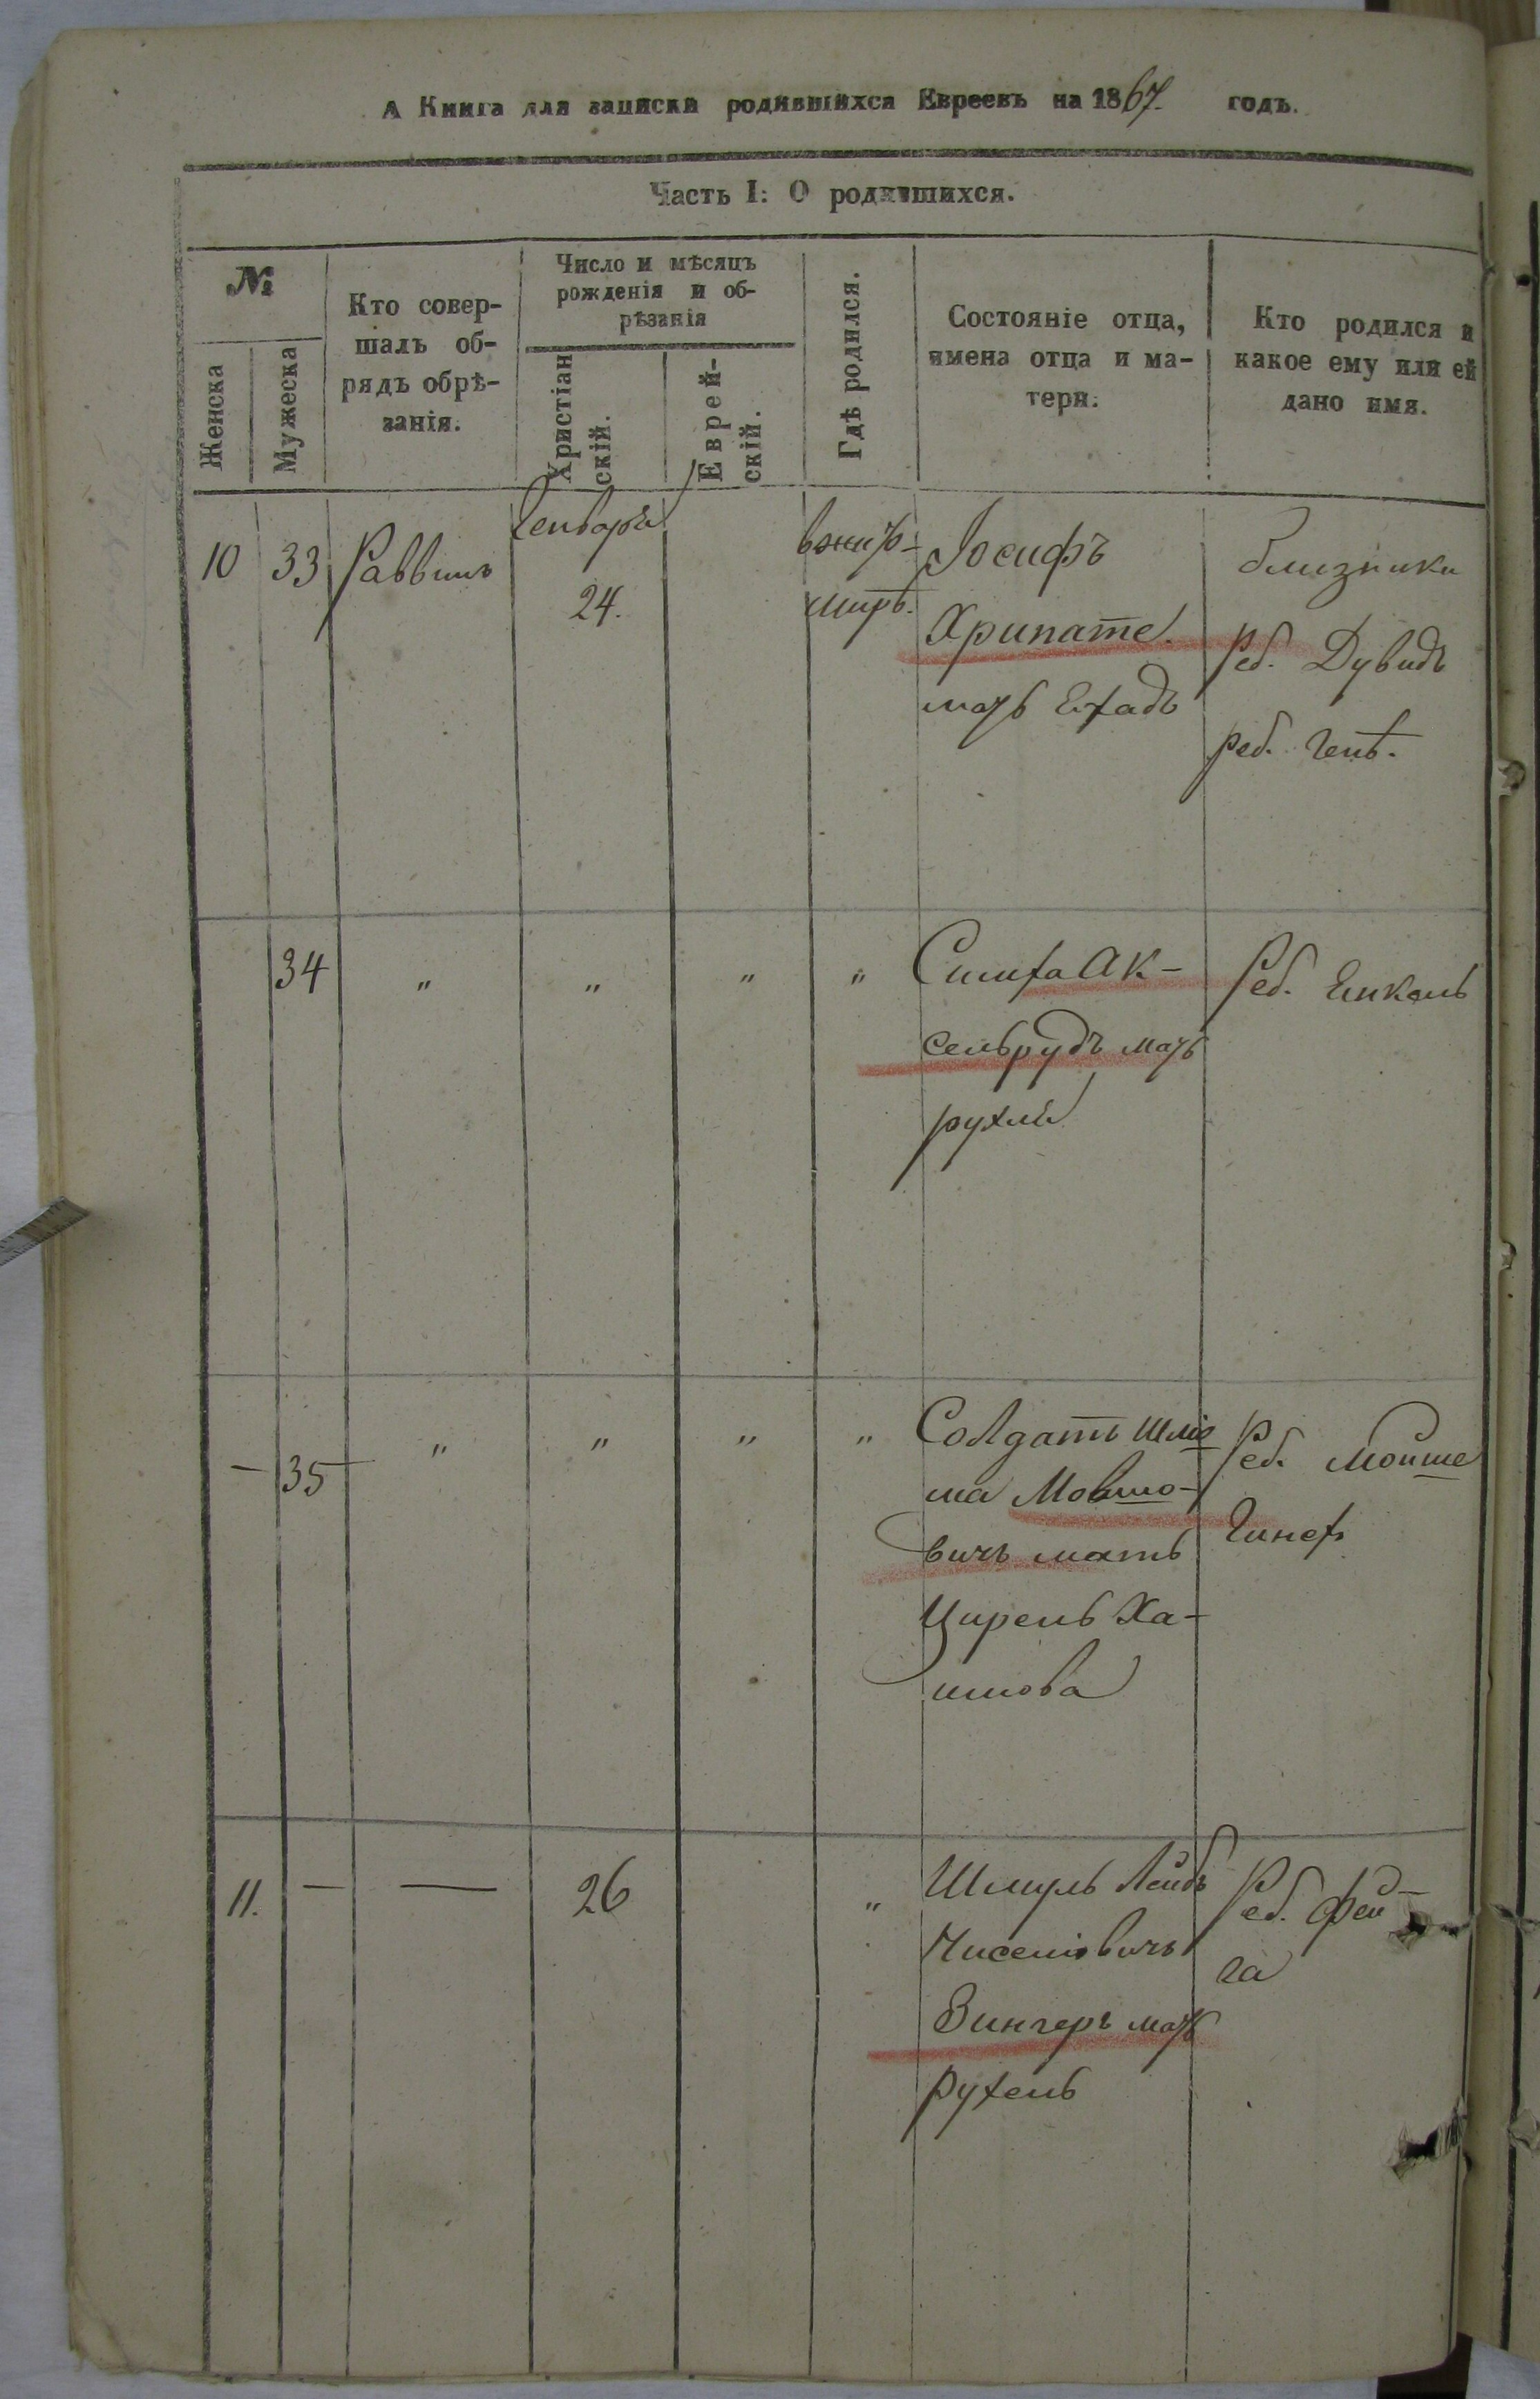 А Книга для записки родившихся Евреевъ на 1867. годъ.
Часть I: О родившихся.
№
Женска
Мужеска
Кто совер-
шалъ об-
рядъ обрѣ-
занія.
Число и мѣсяцъ
рожденія и об-
рѣзанія
Христіан
скій.
Еврей-
скій.
Гдѣ родился.
Состояніе отца,
имена отца и ма-
тери.
Кто родился и
какое ему или ей
дано имя.
10 33 Раввинъ
Генваря
24.
вжито-
мирѣ.
Іосифъ
Хрипате.
мать
близники
Реб. Дувидъ
реб. Генѣ.
34 " " " "
Симха Ак-
сельрудъ мать
рухля
Реб. Еинкель
- 35 " " " "
Солдатъ Шліо
ма Мовшо-
вичъ мать
Цирель Ха-
имова
Реб. Моише
11. — — 26 "
Шмуль Лейбъ
Зингеръ мать
Рухель
Реб. Фей-
га